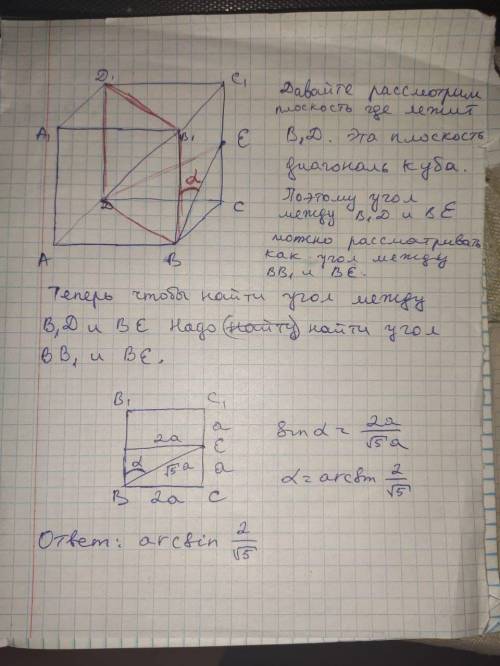 D₁ C₁
Давайте рассмотрим
плоскость где лежит
A₁ B₁ E
B₁D. Эта плоскость
α
диагональ куба.
D C
Поэтому угол
между B₁D и BE
можно рассматривать
A B
как угол между
BB₁ и BE.
Теперь чтобы найти угол между
B₁D и BE Надо (найту) найти угол
BB₁ и BE.
B₁ C₁
a
2a E
α √5 a a
B 2a C
sin α = 2a/√5a
α = arcsin 2/√5
Ответ: arcsin 2/√5